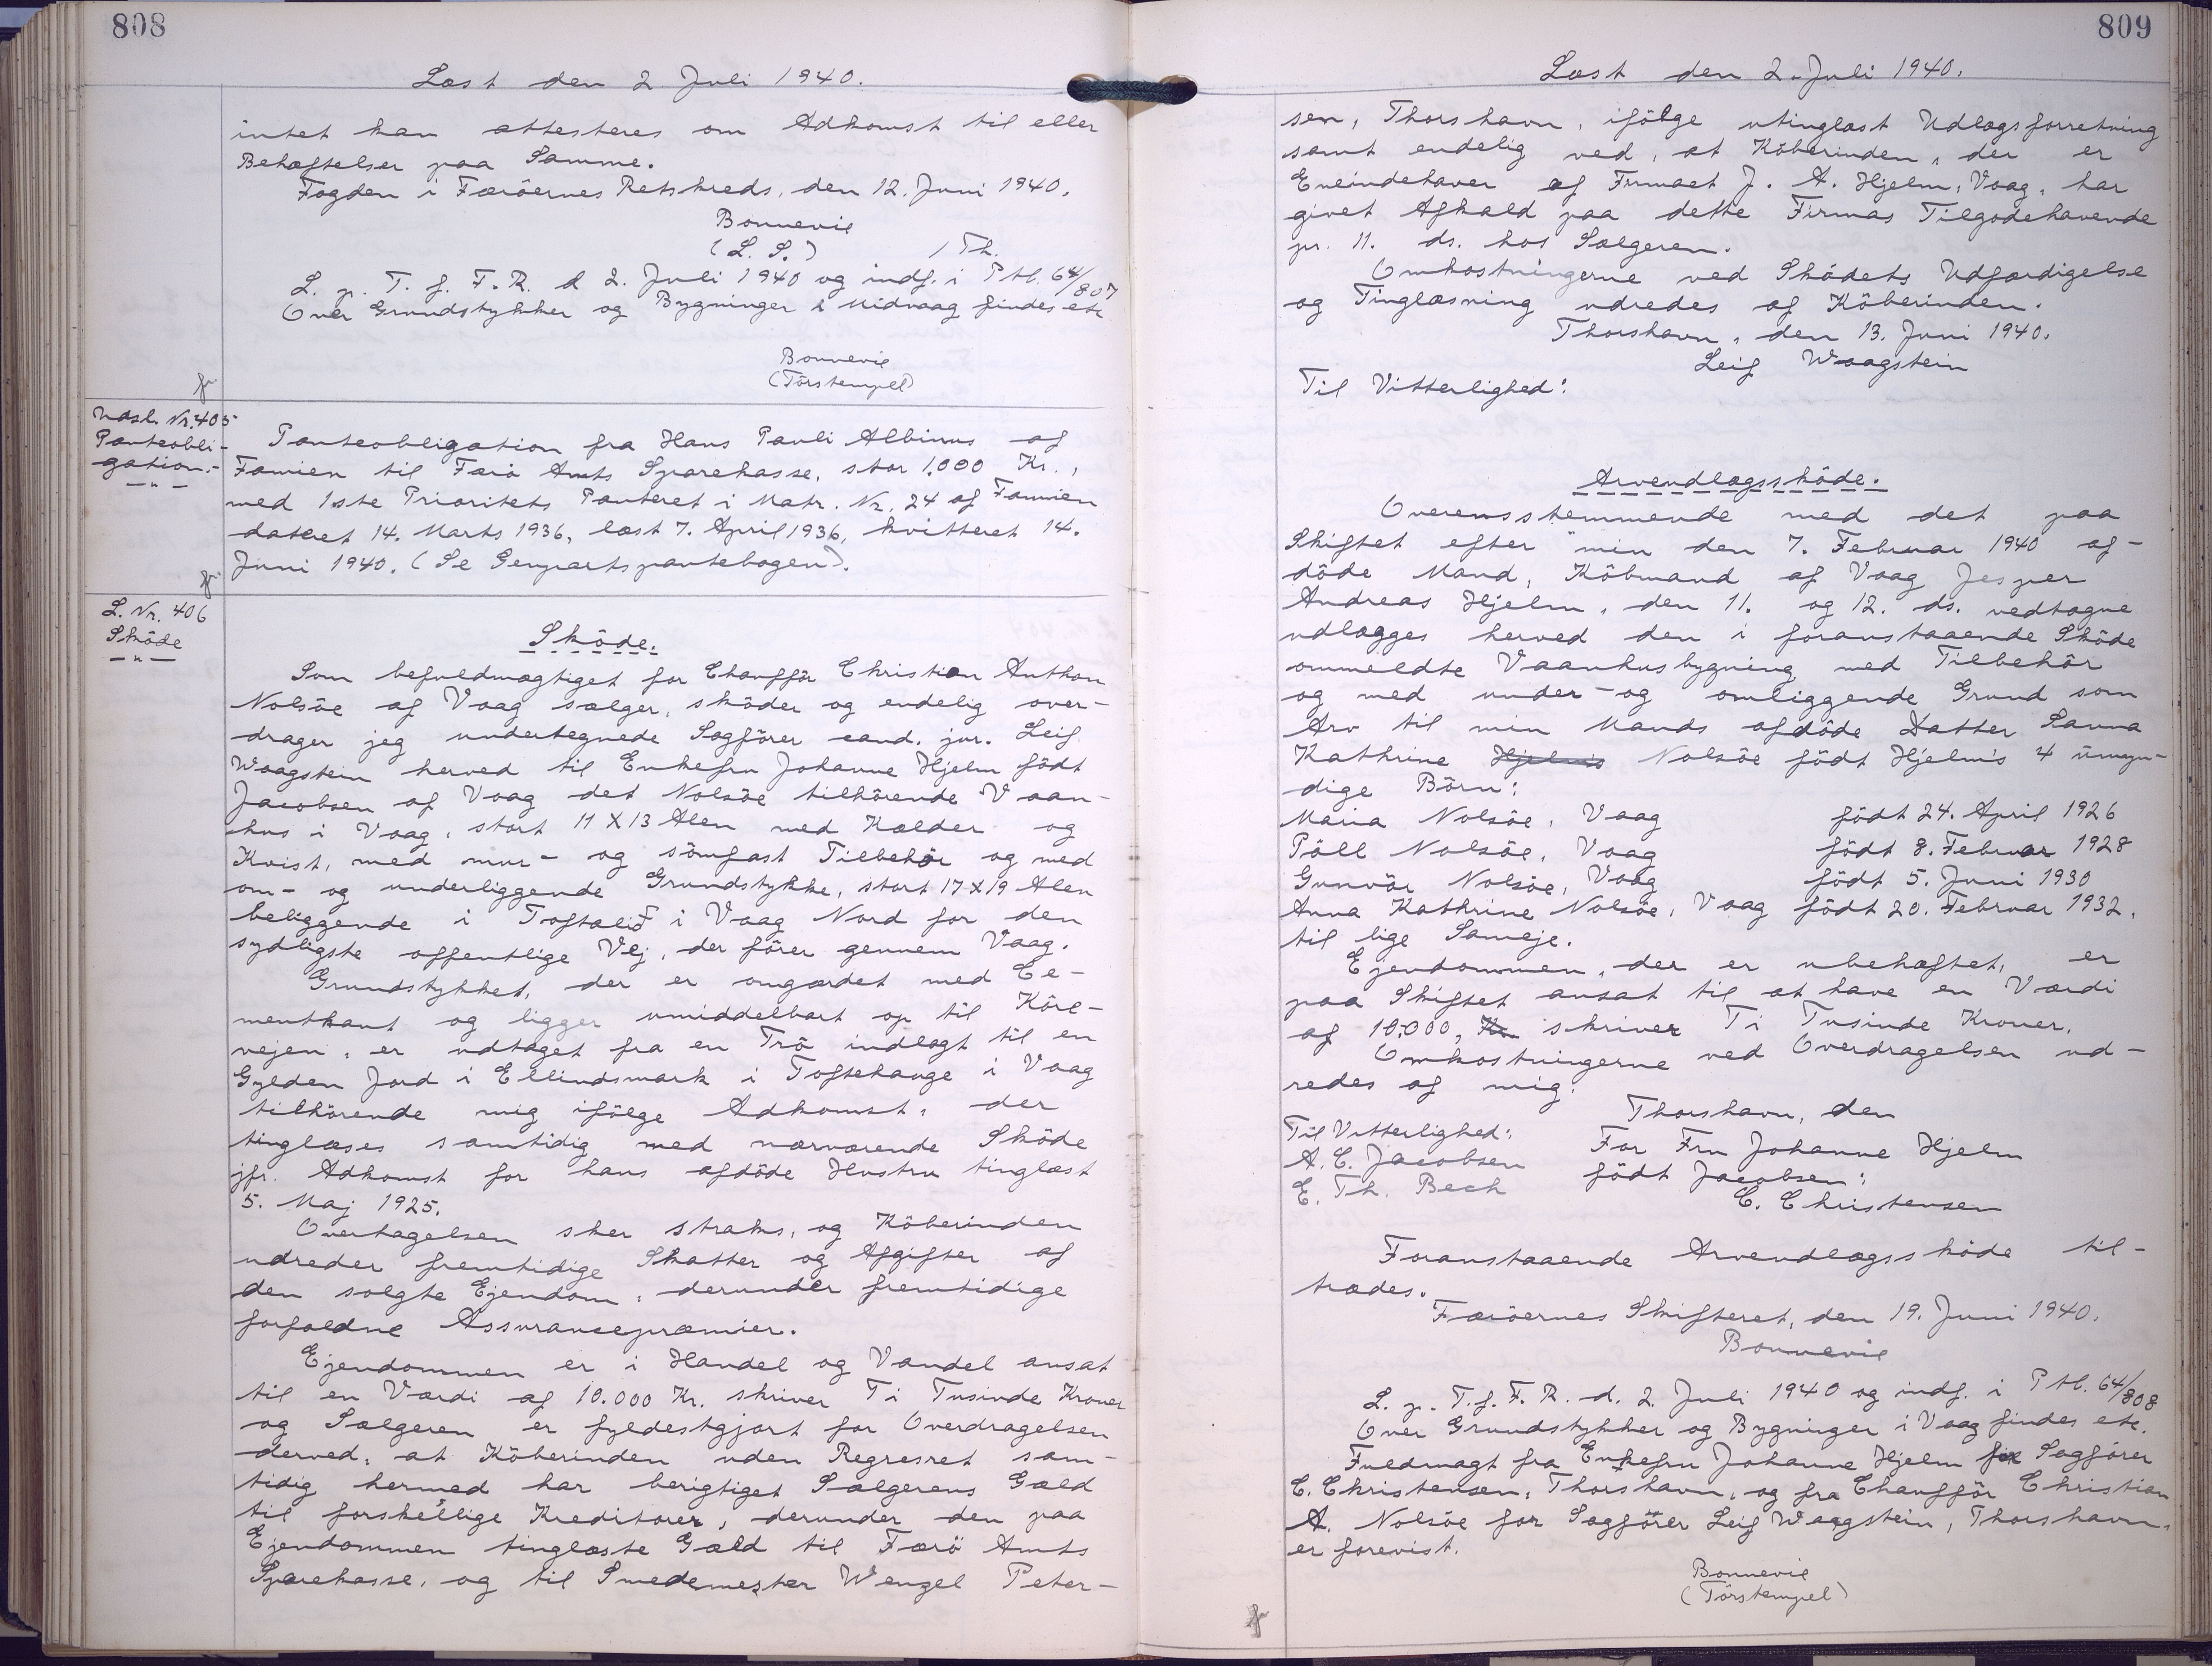 808
Læst den 2 Juli 1940.
intet kan attesteres om Adkomst til eller
Behæftelser paa Samme.
Fogden i Færöernes Retskreds, den 12. Juni 1940.
Bonnevie
(L. S.) / Th.
L. p. T. f. F. R. d 2. Juli 1940 og indf. i Ptb. 64/807
Over Grundstykker og Bygninger i Midvaag findes etc
Bonnevie
(Törstempel)
Udsl. Nr. 405
Panteobli-
gation.-
- " -
Panteobligation fra Hans Pauli Albinus af
Famien til Færö Amts Sparekasse, stor 1.000 Kr.,
med 1ste Prioritets Panteret i Matr. Nr. 24 af Famien
dateret 14. Marts 1936, læst 7. April 1936, kvitteret 14.
Juni 1940. (Se Genpartspantebogen).
L. Nr. 406
Sköde
- " -
Sköde.
Som befuldmægtiget for Chaufför Christian Anthon
Nolsöe af Vaag sælger, sköder og endelig over-
drager jeg undertegnede Sagförer cand. jur. Leif
Waagstein herved til Enkefru Johanne Hjelm födt
Jacobsen af Vaag det Nolsöe tilhörende Vaan-
hus i Vaag, stort 11 X 13 Alen med Kælder og
Kvist, med mur- og sömfast Tilbehör og med
om- og underliggende Grundstykke, stort 17 X 19 Alen
beliggende i Toftalid i Vaag Nord for den
sydligste offentlige Vej, der förer gennem Vaag.
Grundstykket, der er omgærdet med Ce-
mentkant og ligger umiddelbart op til Köre-
vejen, er udtaget fra en Trö indlagt til en
Gylden Jord i Ellindsmark i Toftehauge i Vaag
tilhörende mig ifölge Adkomst, der
tinglæses samtidig med nærværende Sköde
jfr. Adkomst for hans afdöde Hustru tinglæst
5. Maj 1925.
Overtagelsen sker straks, og Köberinden
udreder fremtidige Skatter og Afgifter af
den solgte Ejendom, derunder fremtidige
forfaldne Assurancepræmier.
Ejendommen er i Handel og Vandel ansat
til en Værdi af 10.000 Kr. skriver Ti Tusinde Kroner
og Sælgeren er fyldestgjort for Overdragelsen
derved, at Köberinden uden Regresret sam-
tidig hermed har berigtiget Sælgerens Gæld
til forskellige Kreditorer, derunder den paa
Ejendommen tinglæste Gæld til Færö Amts
Sparekasse, og til Smedemester Wenzel Peter-
809
Læst den 2. Juli 1940.
sen, Thorshavn, ifölge utinglæst Udlægsforretning
samt endelig ved, at Köberinden, der er
Eneindehaver af Firmaet J. A. Hjelm, Vaag, har
givet Afkald paa dette Firmas Tilgodehavende
pr. 11. ds. hos Sælgeren.
Omkostningerne ved Sködets Udfærdigelse
og Tinglæsning udredes af Köberinden.
Thorshavn, den 13. Juni 1940.
Leif Waagstein
Til Vitterlighed:
Arveudlægssköde.
Overensstemmende med det paa
Skiftet efter min den 7. Februar 1940 af-
döde Mand, Köbmand af Vaag Jesper
Andreas Hjelm, den 11. og 12. ds. vedtagne
udlægges herved den i foranstaaende Sköde
ommeldte Vaanhusbygning med Tilbehör
og med under- og omliggende Grund som
Arv til min Mands afdöde Datter Sanna
Kathrine Hjelm's Nolsöe födt Hjelm's 4 umyn-
dige Börn:
Maria Nolsöe, Vaag födt 24. April 1926
Páll Nolsöe, Vaag födt 8. Februar 1928
Gunvör Nolsöe, Vaag födt 5. Juni 1930
Anna Kathrine Nolsöe, Vaag födt 20. Februar 1932.
til lige Sameje.
Ejendommen, der er ubehæftet, er
paa Skiftet ansat til at have en Værdi
af 10.000, Kr. skriver Ti Tusinde Kroner.
Omkostningerne ved Overdragelsen ud-
redes af mig.
Thorshavn, den
Til Vitterlighed: For Fru Johanne Hjelm
A. C. Jacobsen födt Jacobsen:
E. Th. Bech C. Christensen
Foranstaaende Arveudlægssköde til-
trædes.
Færöernes Skifteret, den 19. Juni 1940.
Bonnevie
L. p. T. f. F. R. d. 2. Juli 1940 og indf. i Ptb. 64/808
Over Grundstykker og Bygninger i Vaag findes etc.
Fuldmagt fra Enkefru Johanne Hjelm for Sagförer
C. Christensen, Thorshavn, og fra Chaufför Christian
A. Nolsöe for Sagförer Leif Waagstein, Thorshavn,
er forevist.
Bonnevie
(Törstempel)